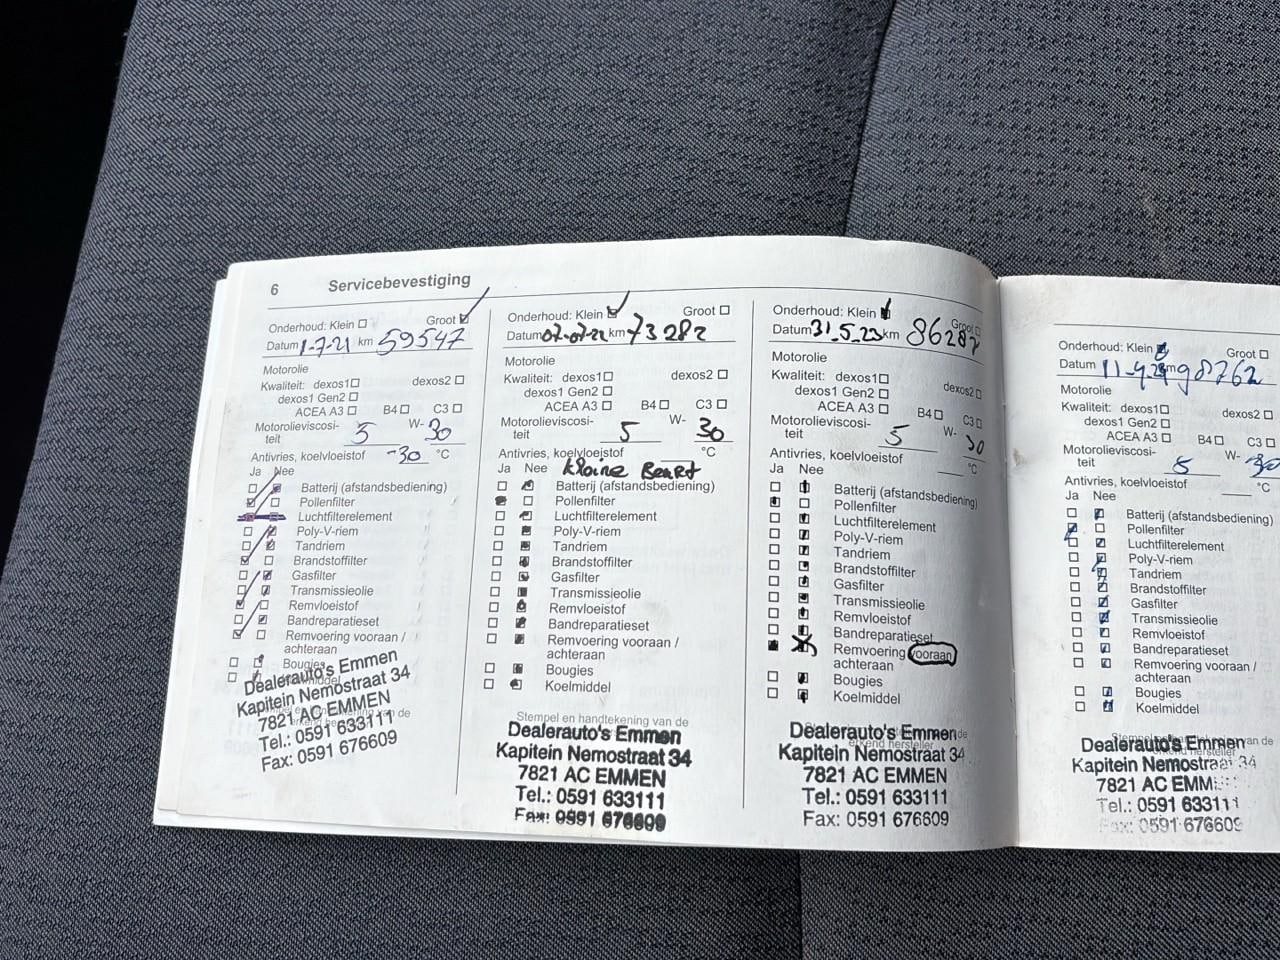 6 Servicebevestiging
Onderhoud: Klein Groot
Datum 1-7-21 km 59547
Motorolie
Kwaliteit: dexos1 dexos2
dexos1 Gen2
ACEA A3 B4 C3
Motorolieviscosi-
teit 5 W- 30
Antivries, koelvloeistof -30 °C
Ja Nee
Batterij (afstandsbediening)
Pollenfilter
Luchtfilterelement
Poly-V-riem
Tandriem
Brandstoffilter
Gasfilter
Transmissieolie
Remvloeistof
Bandreparatieset
Remvoering vooraan /
achteraan
Bougies
Dealerauto's Emmen
Kapitein Nemostraat 34
7821 AC EMMEN
Tel.: 0591 633111
Fax: 0591 676609
Onderhoud: Klein Groot
Datum 07-07-22 km 73282
Motorolie
Kwaliteit: dexos1 dexos2
dexos1 Gen2
ACEA A3 B4 C3
Motorolieviscosi-
teit 5 W- 30
Antivries, koelvloeistof °C
Ja Nee Kleine Beurt
Batterij (afstandsbediening)
Pollenfilter
Luchtfilterelement
Poly-V-riem
Tandriem
Brandstoffilter
Gasfilter
Transmissieolie
Remvloeistof
Bandreparatieset
Remvoering vooraan /
achteraan
Bougies
Koelmiddel
Stempel en handtekening van de
Dealerauto's Emmen
Kapitein Nemostraat 34
7821 AC EMMEN
Tel.: 0591 633111
Fax: 0591 676609
Onderhoud: Klein Groot
Datum 31-5-23 km 86287
Motorolie
Kwaliteit: dexos1 dexos2
dexos1 Gen2
ACEA A3 B4 C3
Motorolieviscosi-
teit 5 W- 30
Antivries, koelvloeistof °C
Ja Nee
Batterij (afstandsbediening)
Pollenfilter
Luchtfilterelement
Poly-V-riem
Tandriem
Brandstoffilter
Gasfilter
Transmissieolie
Remvloeistof
Bandreparatieset
Remvoering vooraan
achteraan
Bougies
Koelmiddel
Dealerauto's Emmen
Kapitein Nemostraat 34
7821 AC EMMEN
Tel.: 0591 633111
Fax: 0591 676609
Onderhoud: Klein Groot
Datum 11-4-24 km 98762
Motorolie
Kwaliteit: dexos1 dexos2
dexos1 Gen2
ACEA A3 B4 C3
Motorolieviscosi-
teit 5 W- 30
Antivries, koelvloeistof °C
Ja Nee
Batterij (afstandsbediening)
Pollenfilter
Luchtfilterelement
Poly-V-riem
Tandriem
Brandstoffilter
Gasfilter
Transmissieolie
Remvloeistof
Bandreparatieset
Remvoering vooraan /
achteraan
Bougies
Koelmiddel
Dealerauto's Emmen
Kapitein Nemostraat 34
7821 AC EMM
Tel.: 0591 633111
Fax: 0591 676609